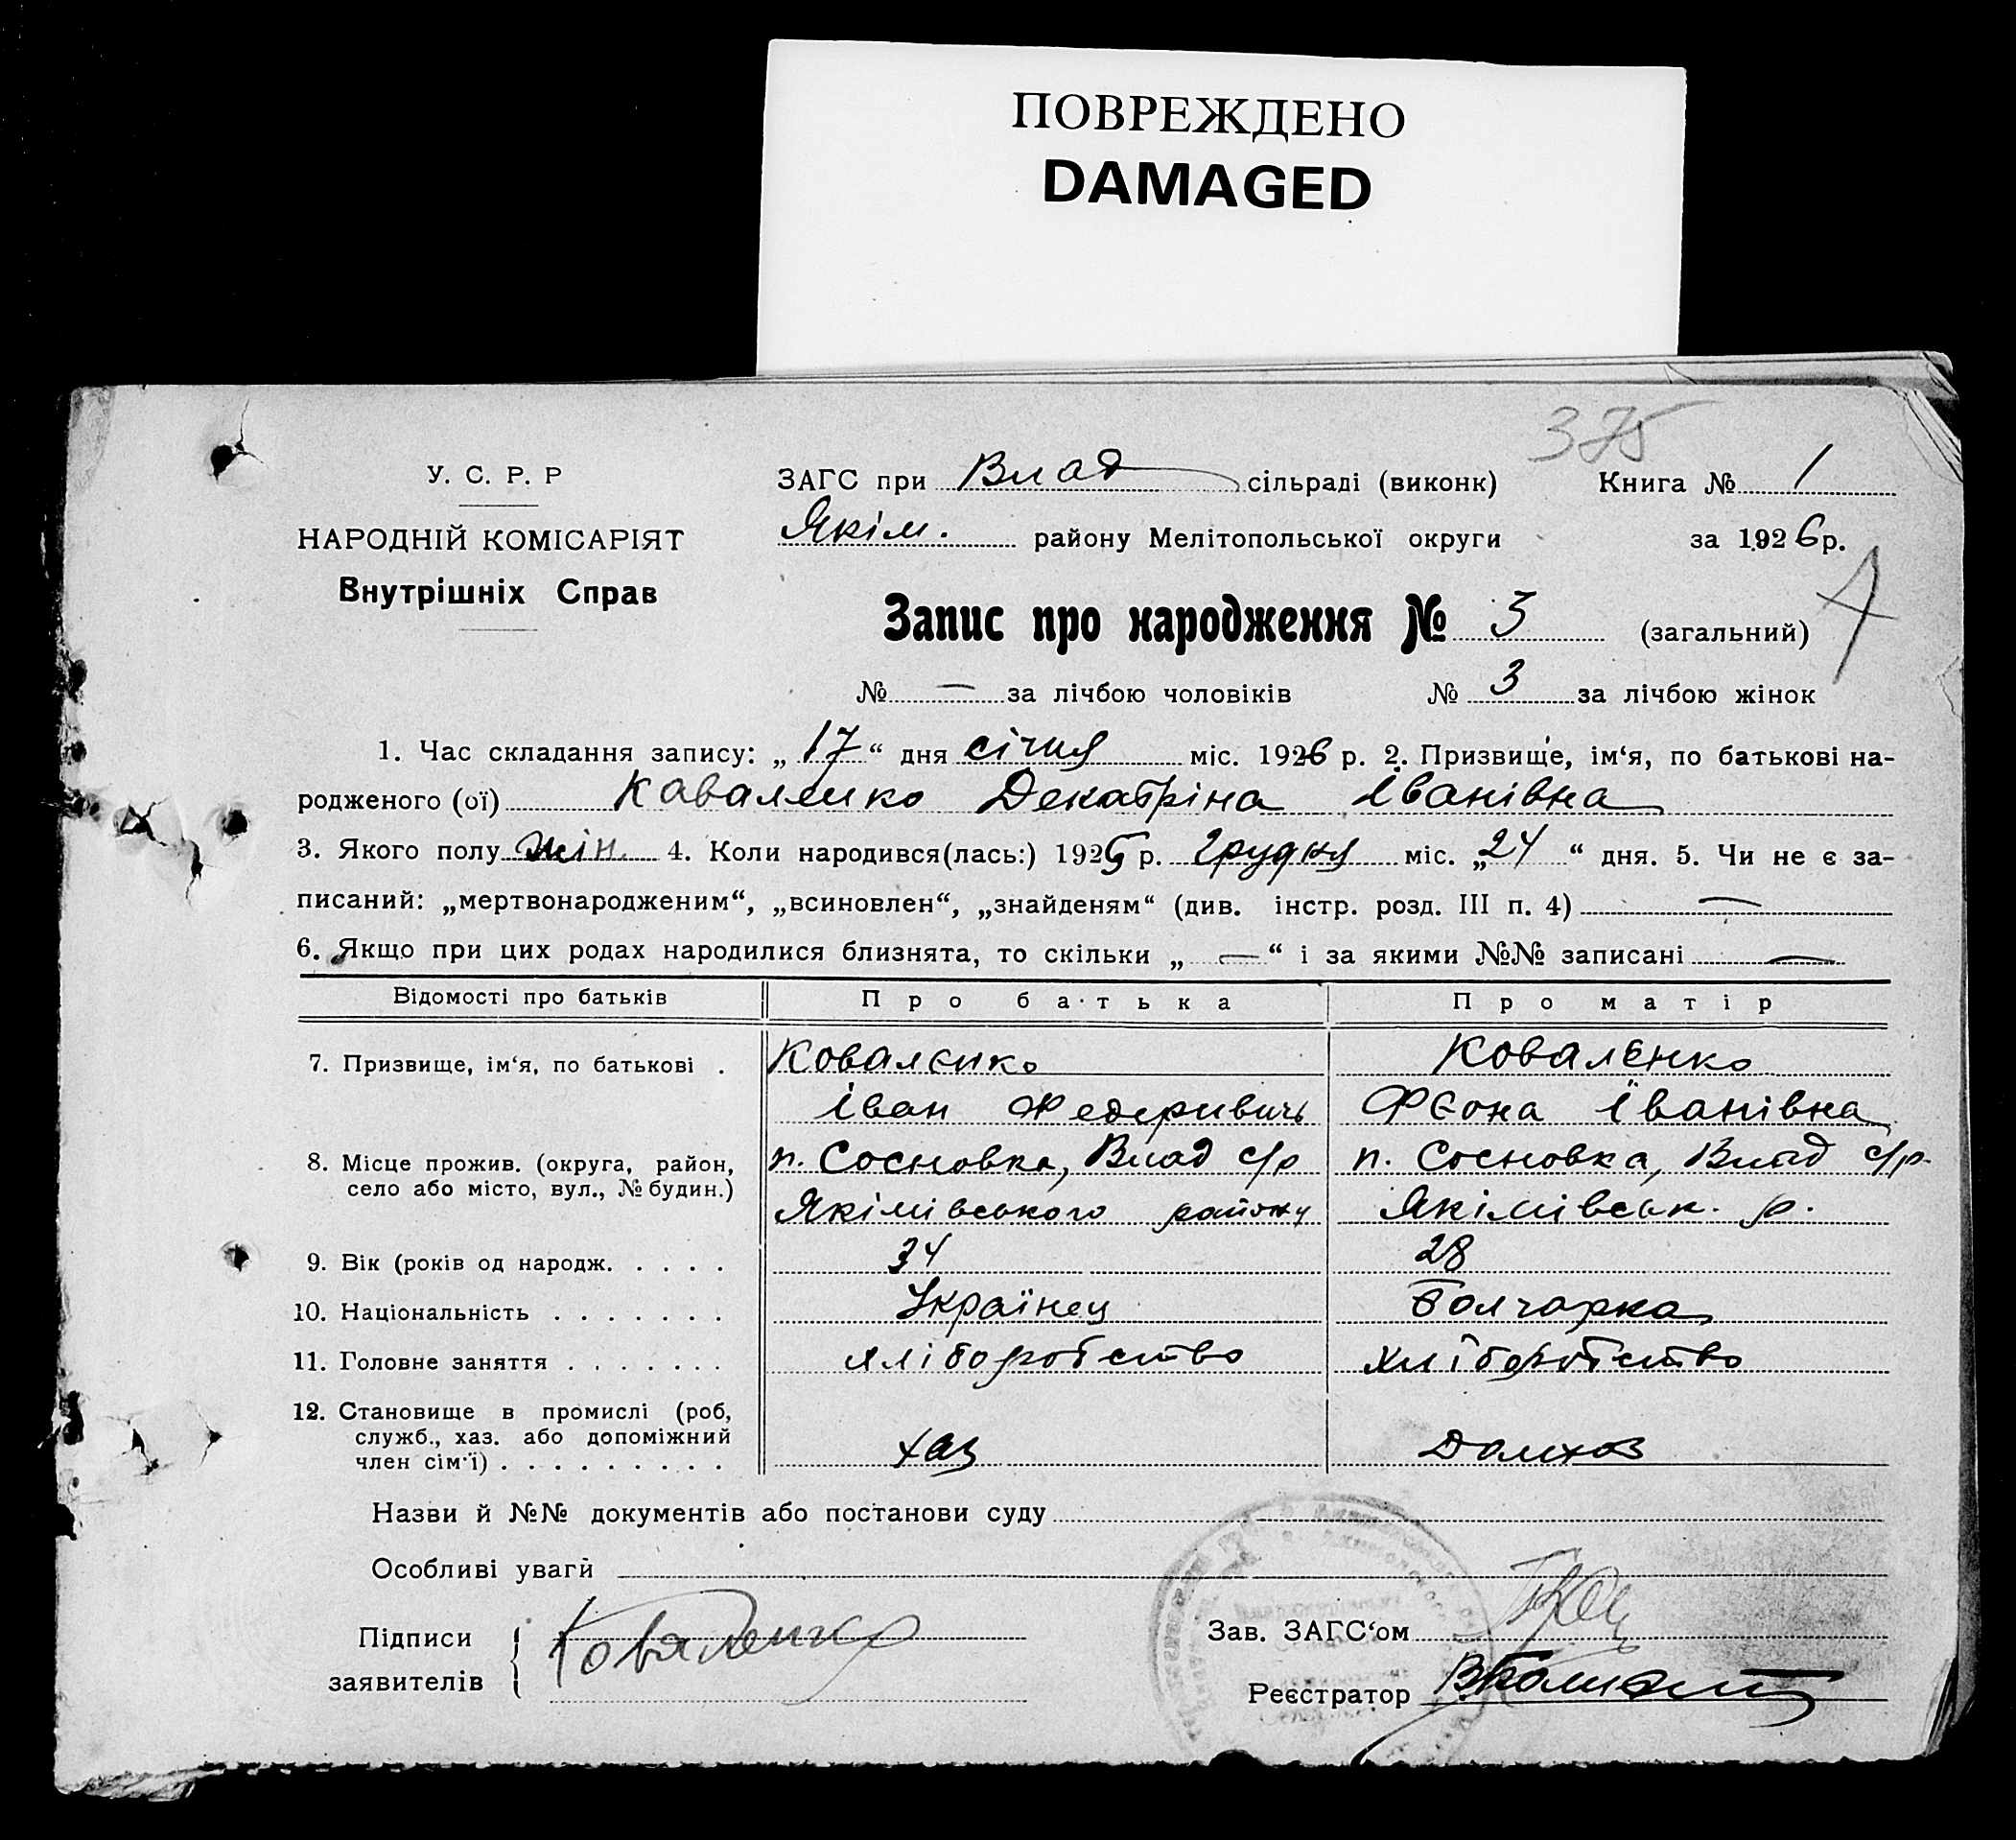 ПОВРЕЖДЕНО
DAMAGED
375
У. С. Р. Р
НАРОДНІЙ КОМІСАРІЯТ
Внутрішніх Справ
ЗАГС при Влад сільраді (виконк) Книга № 1
Якім. району Мелітопольської округи за 1926 р.
Запис про народження № 3 (загальний)
№ — за лічбою чоловіків № 3 за лічбою жінок
1. Час складання запису: „ 17 “ дня січня міс. 1926 р. 2. Призвище, ім‘я, по батькові на-
родженого (ої) Каваленко Декатріна Іванівна
3. Якого полу жін. 4. Коли народився(лась:) 1925 р. Грудня міс. „ 24 “ дня. 5. Чи не є за-
писаний: „мертвонародженим“, „всиновлен“, „знайденям“ (див. інстр. розд. III п. 4) —
6. Якщо при цих родах народилися близнята, то скільки „ — “ і за якими №№ записані —
Відомості про батьків Про батька Про матір
7. Призвище, ім‘я, по батькові . Коваленко Коваленко
Іван Федеривичь Феона Іванівна
8. Місце прожив. (округа, район, п. Сосновка, Влад с/р п. Сосновка, Влад с/р.
село або місто, вул., № будин.) Якімівського району Якімівськ. р.
9. Вік (років од народж. . . . . 34 28
10. Національність . . . . . . . Українец Болгарка
11. Головне заняття . . . . . . . хліборобство хліборобство
12. Становище в промислі (роб,
служб., хаз. або допоміжний хаз Домхоз
член сім‘ї) . . . . . . . . .
Назви й №№ документів або постанови суду
Особливі уваги
Підписи Коваленко Зав. ЗАГС‘ом
заявителів Реєстратор